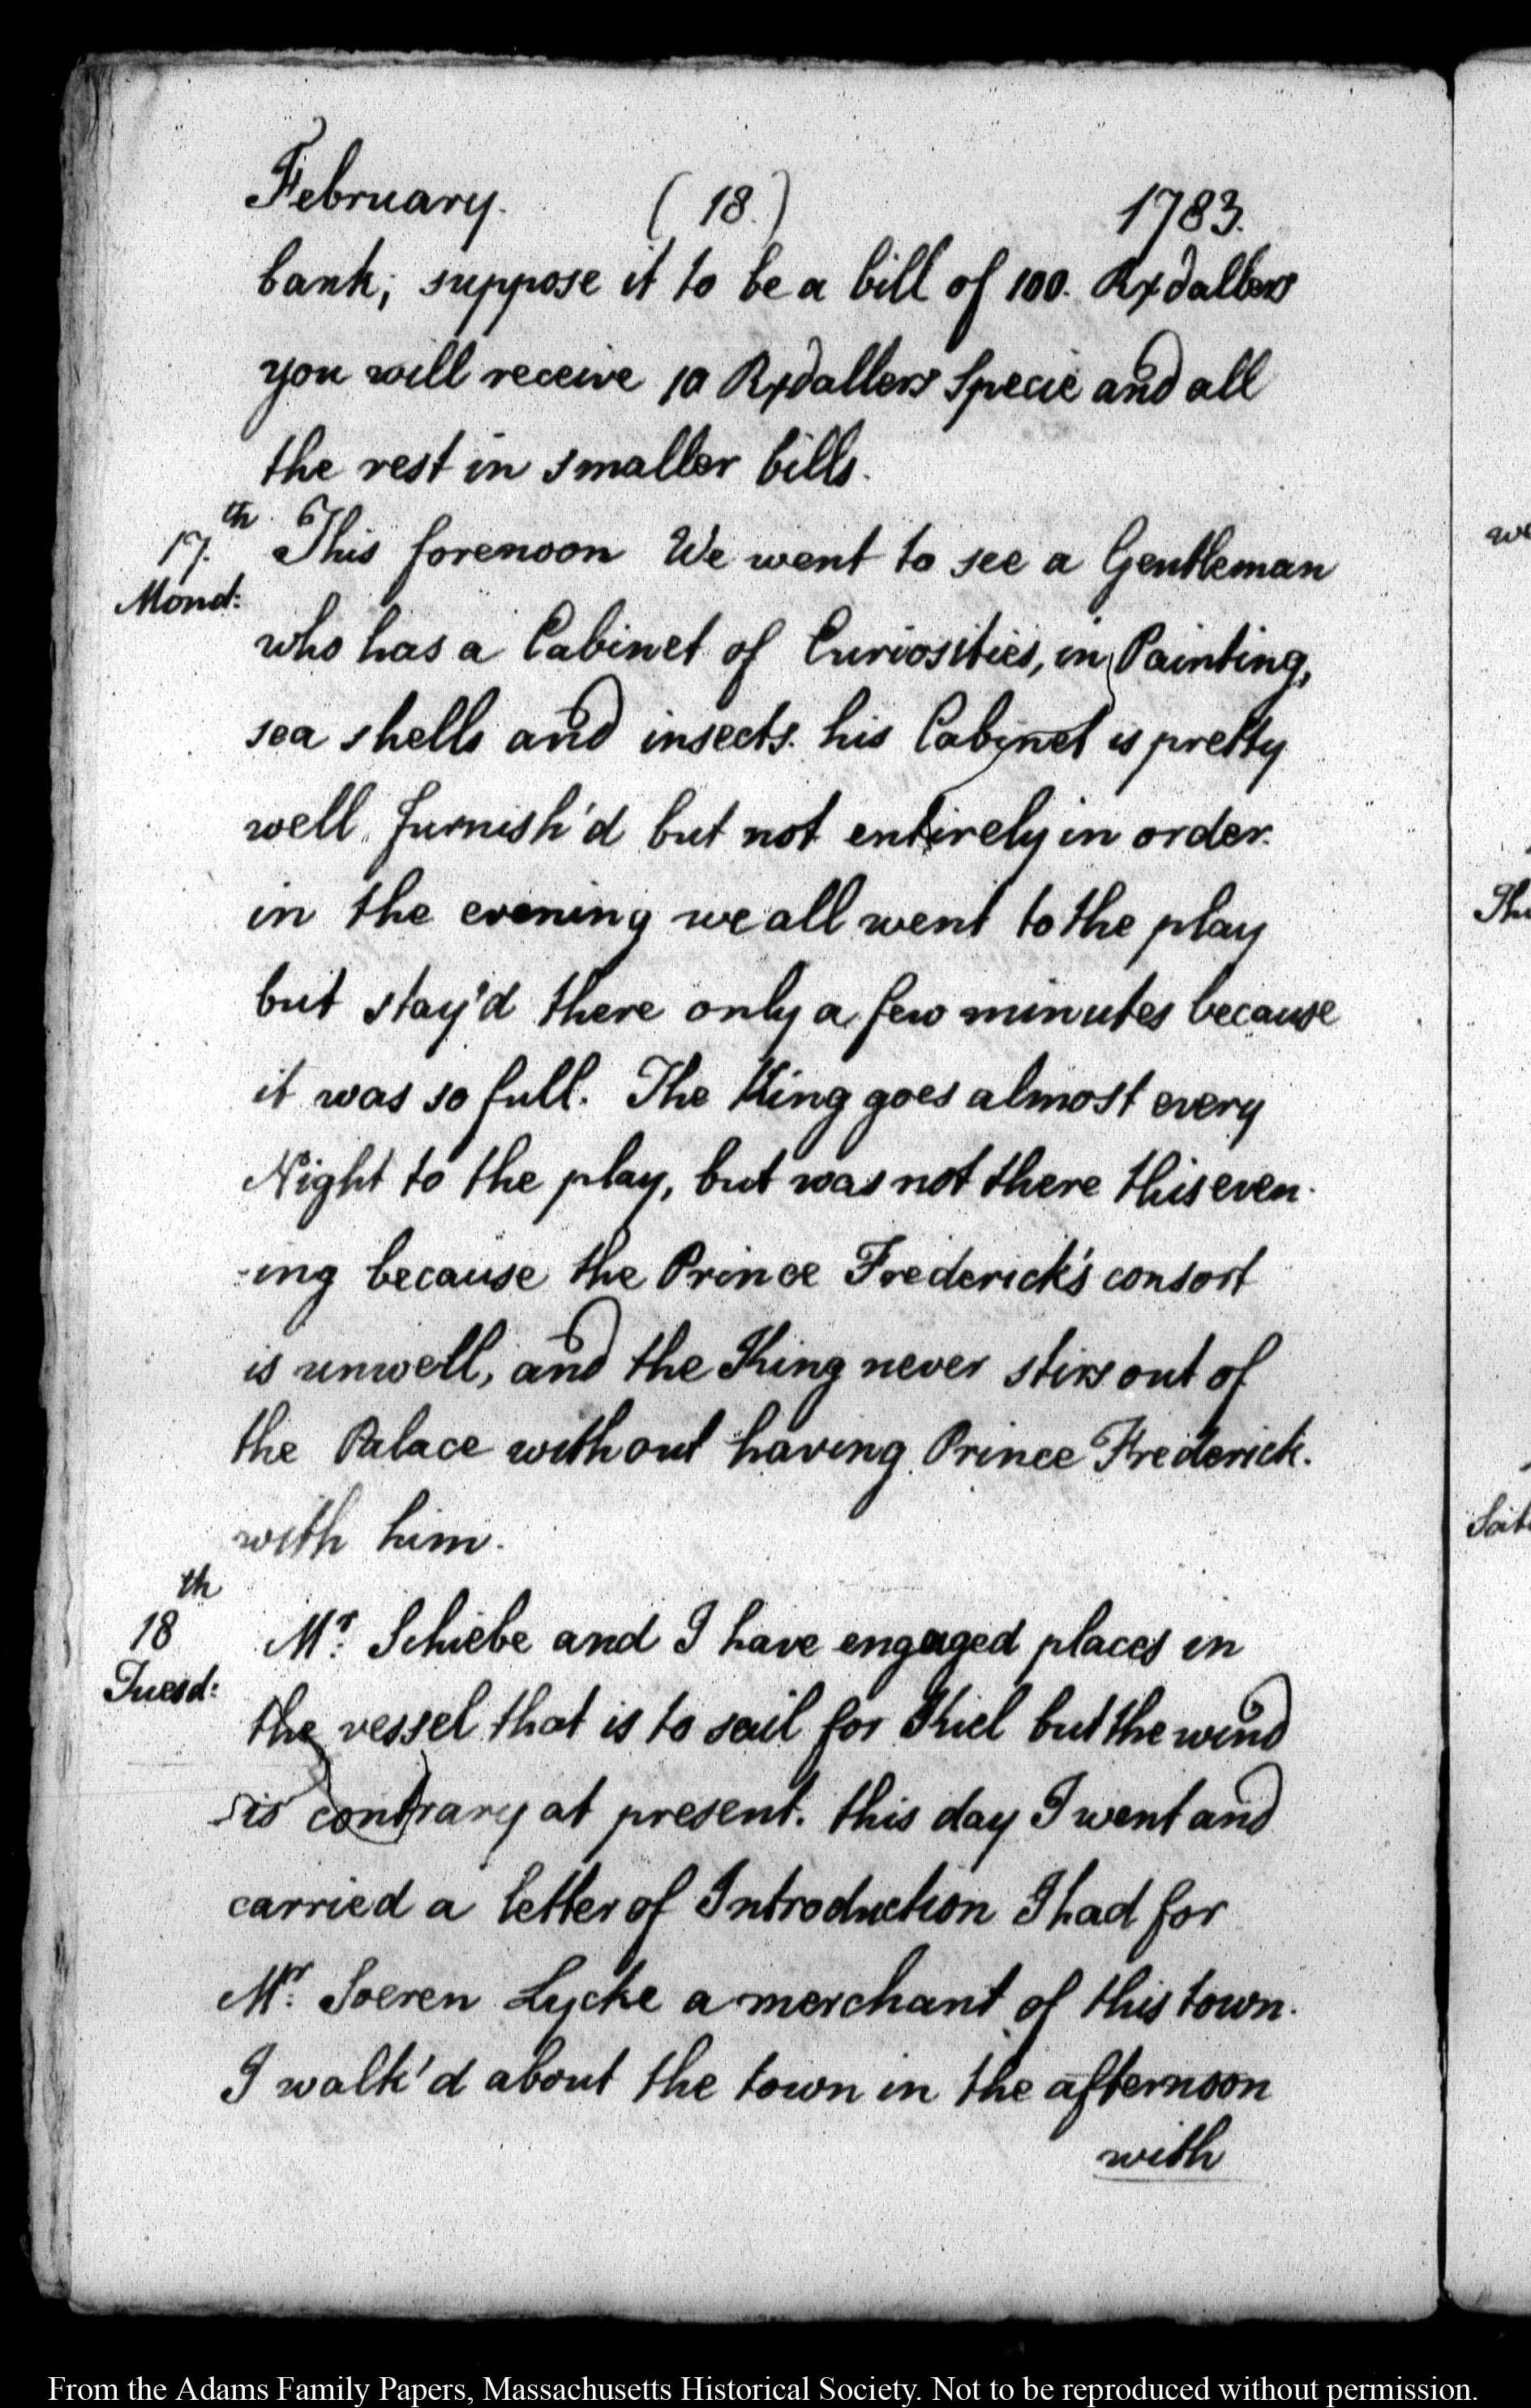 February. (18.) 1783.
bank; suppose it to be a bill of 100. Rxdallers
you will receive 10 Rxdallers Specie and all
the rest in smaller bills.
17.th This forenoon We went to see a Gentleman
Mond:
who has a Cabinet of Curiosities, in Painting,
sea shells and insects. his Cabinet is pretty
well furnish'd but not entirely in order.
in the evening we all went to the play
but stay'd there only a few minutes because
it was so full. The King goes almost every
Night to the play, but was not there this even-
-ing because the Prince Frederick's consort
is unwell, and the King never stirs out of
the Palace without having Prince Frederick.
with him.
18th Mr: Schiebe and I have engaged places in
Tuesd:
the vessel that is to sail for Kiel but the wind
is contrary at present. this day I went and
carried a letter of Introduction I had for
Mr: Soeren Lycke a merchant of this town.
I walk'd about the town in the afternoon
with
From the Adams Family Papers, Massachusetts Historical Society. Not to be reproduced without permission.